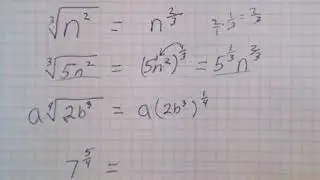 ∛n² = n^(2/3) 2/1 · 1/3 = 2/3
∛5n² = (5n²)^(1/3) = 5^(1/3) n^(2/3)
a∜2b³ = a(2b³)^(1/4)
7^(5/4) =